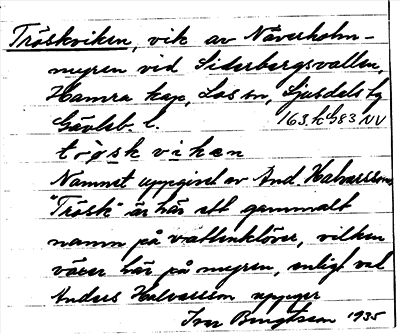 Tröskviken, vik av Näverholm-
myren vid Siderbergsvallen,
Hamra kap, Los sn, Ljusdels tg
Gävleb. l. 163. k G83 NV
tröskviken
Namnet uppgivet av And. Halvarsson,
"Trösk" är här ett gammalt
namn på vattenklöver, vilken
växer här på myren, enligt vad
Anders Halvarsson uppger
Ivar Bengtsson 1935